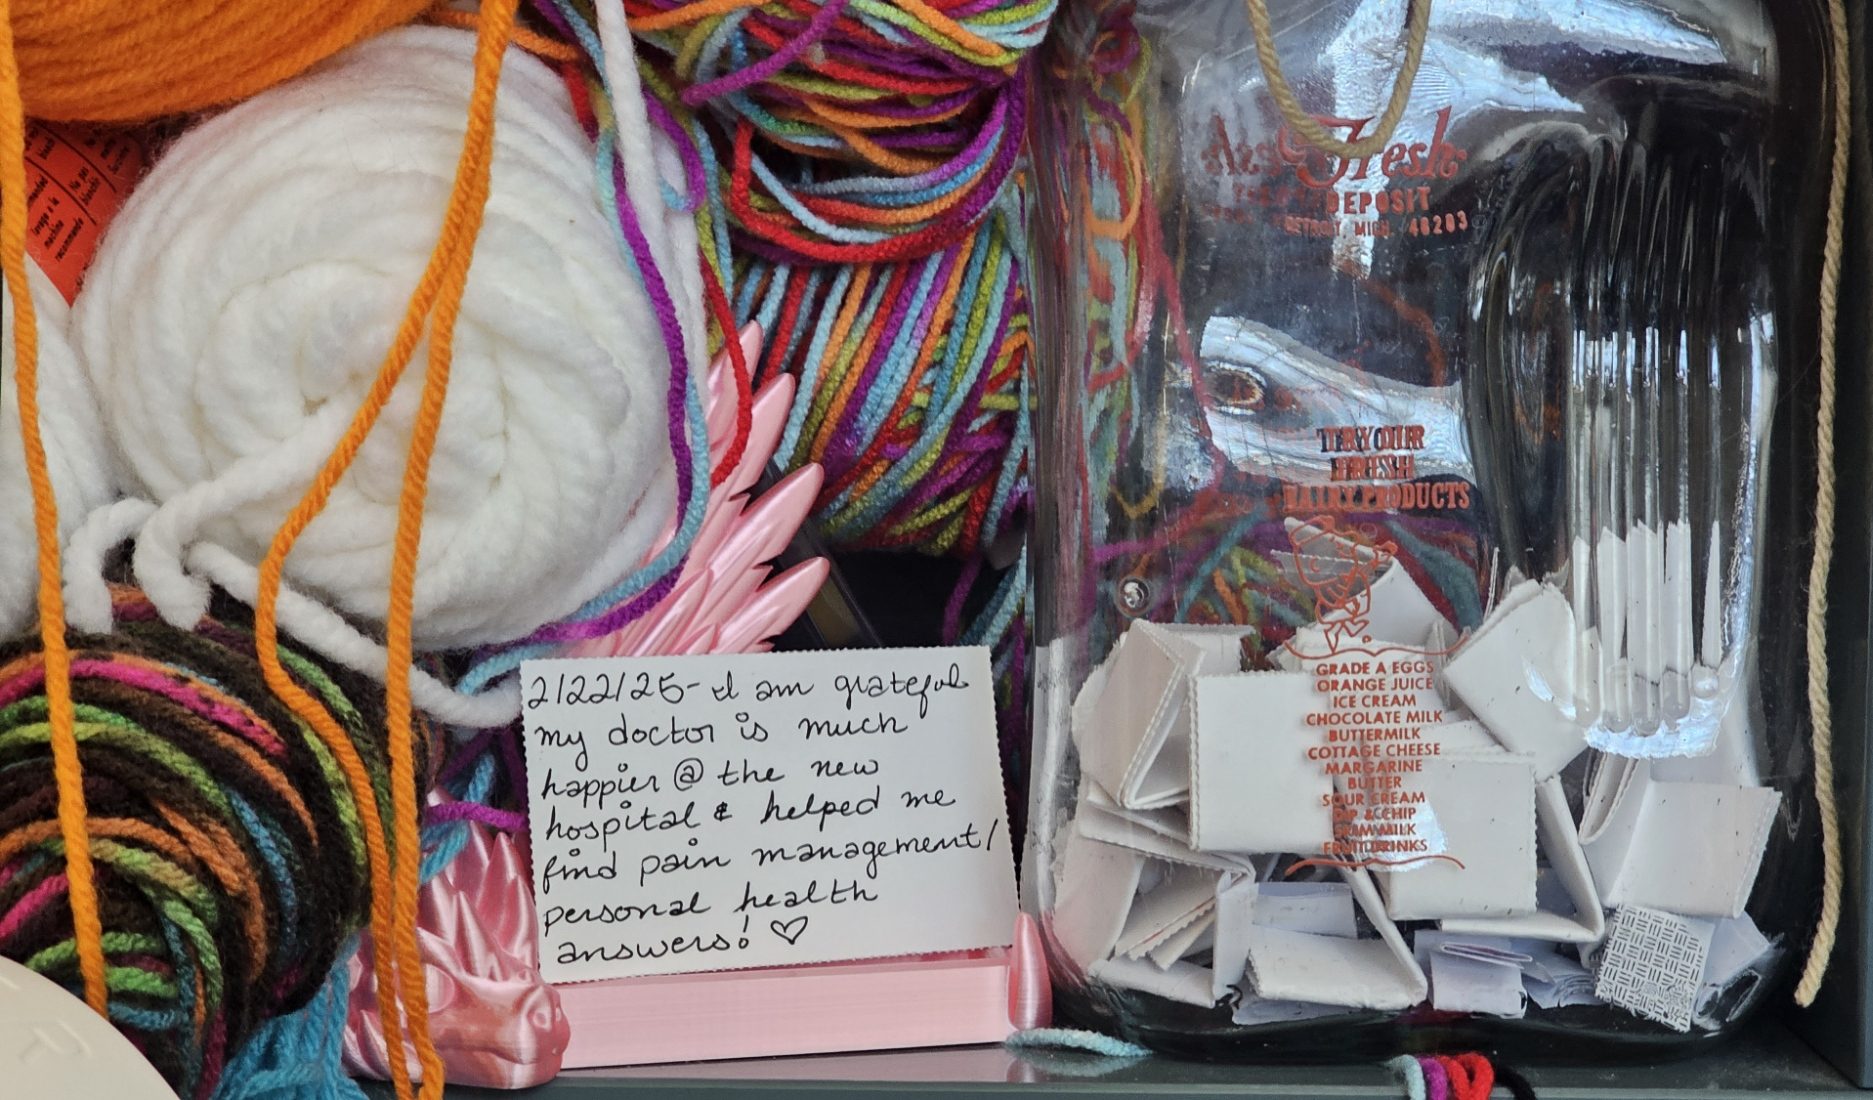 2/22/25- I am grateful
my doctor is much
happier @ the new
hospital & helped me
find pain management/
personal health
answers! ♡
Fresh
DEPOSIT
DETROIT, MICH. 48203
TRY OUR
FRESH
DAIRY PRODUCTS
GRADE A EGGS
ORANGE JUICE
ICE CREAM
CHOCOLATE MILK
BUTTERMILK
COTTAGE CHEESE
MARGARINE
BUTTER
SOUR CREAM
DIP & CHIP
SKIM MILK
FRUIT DRINKS
Lavage à la
machine
recommandé